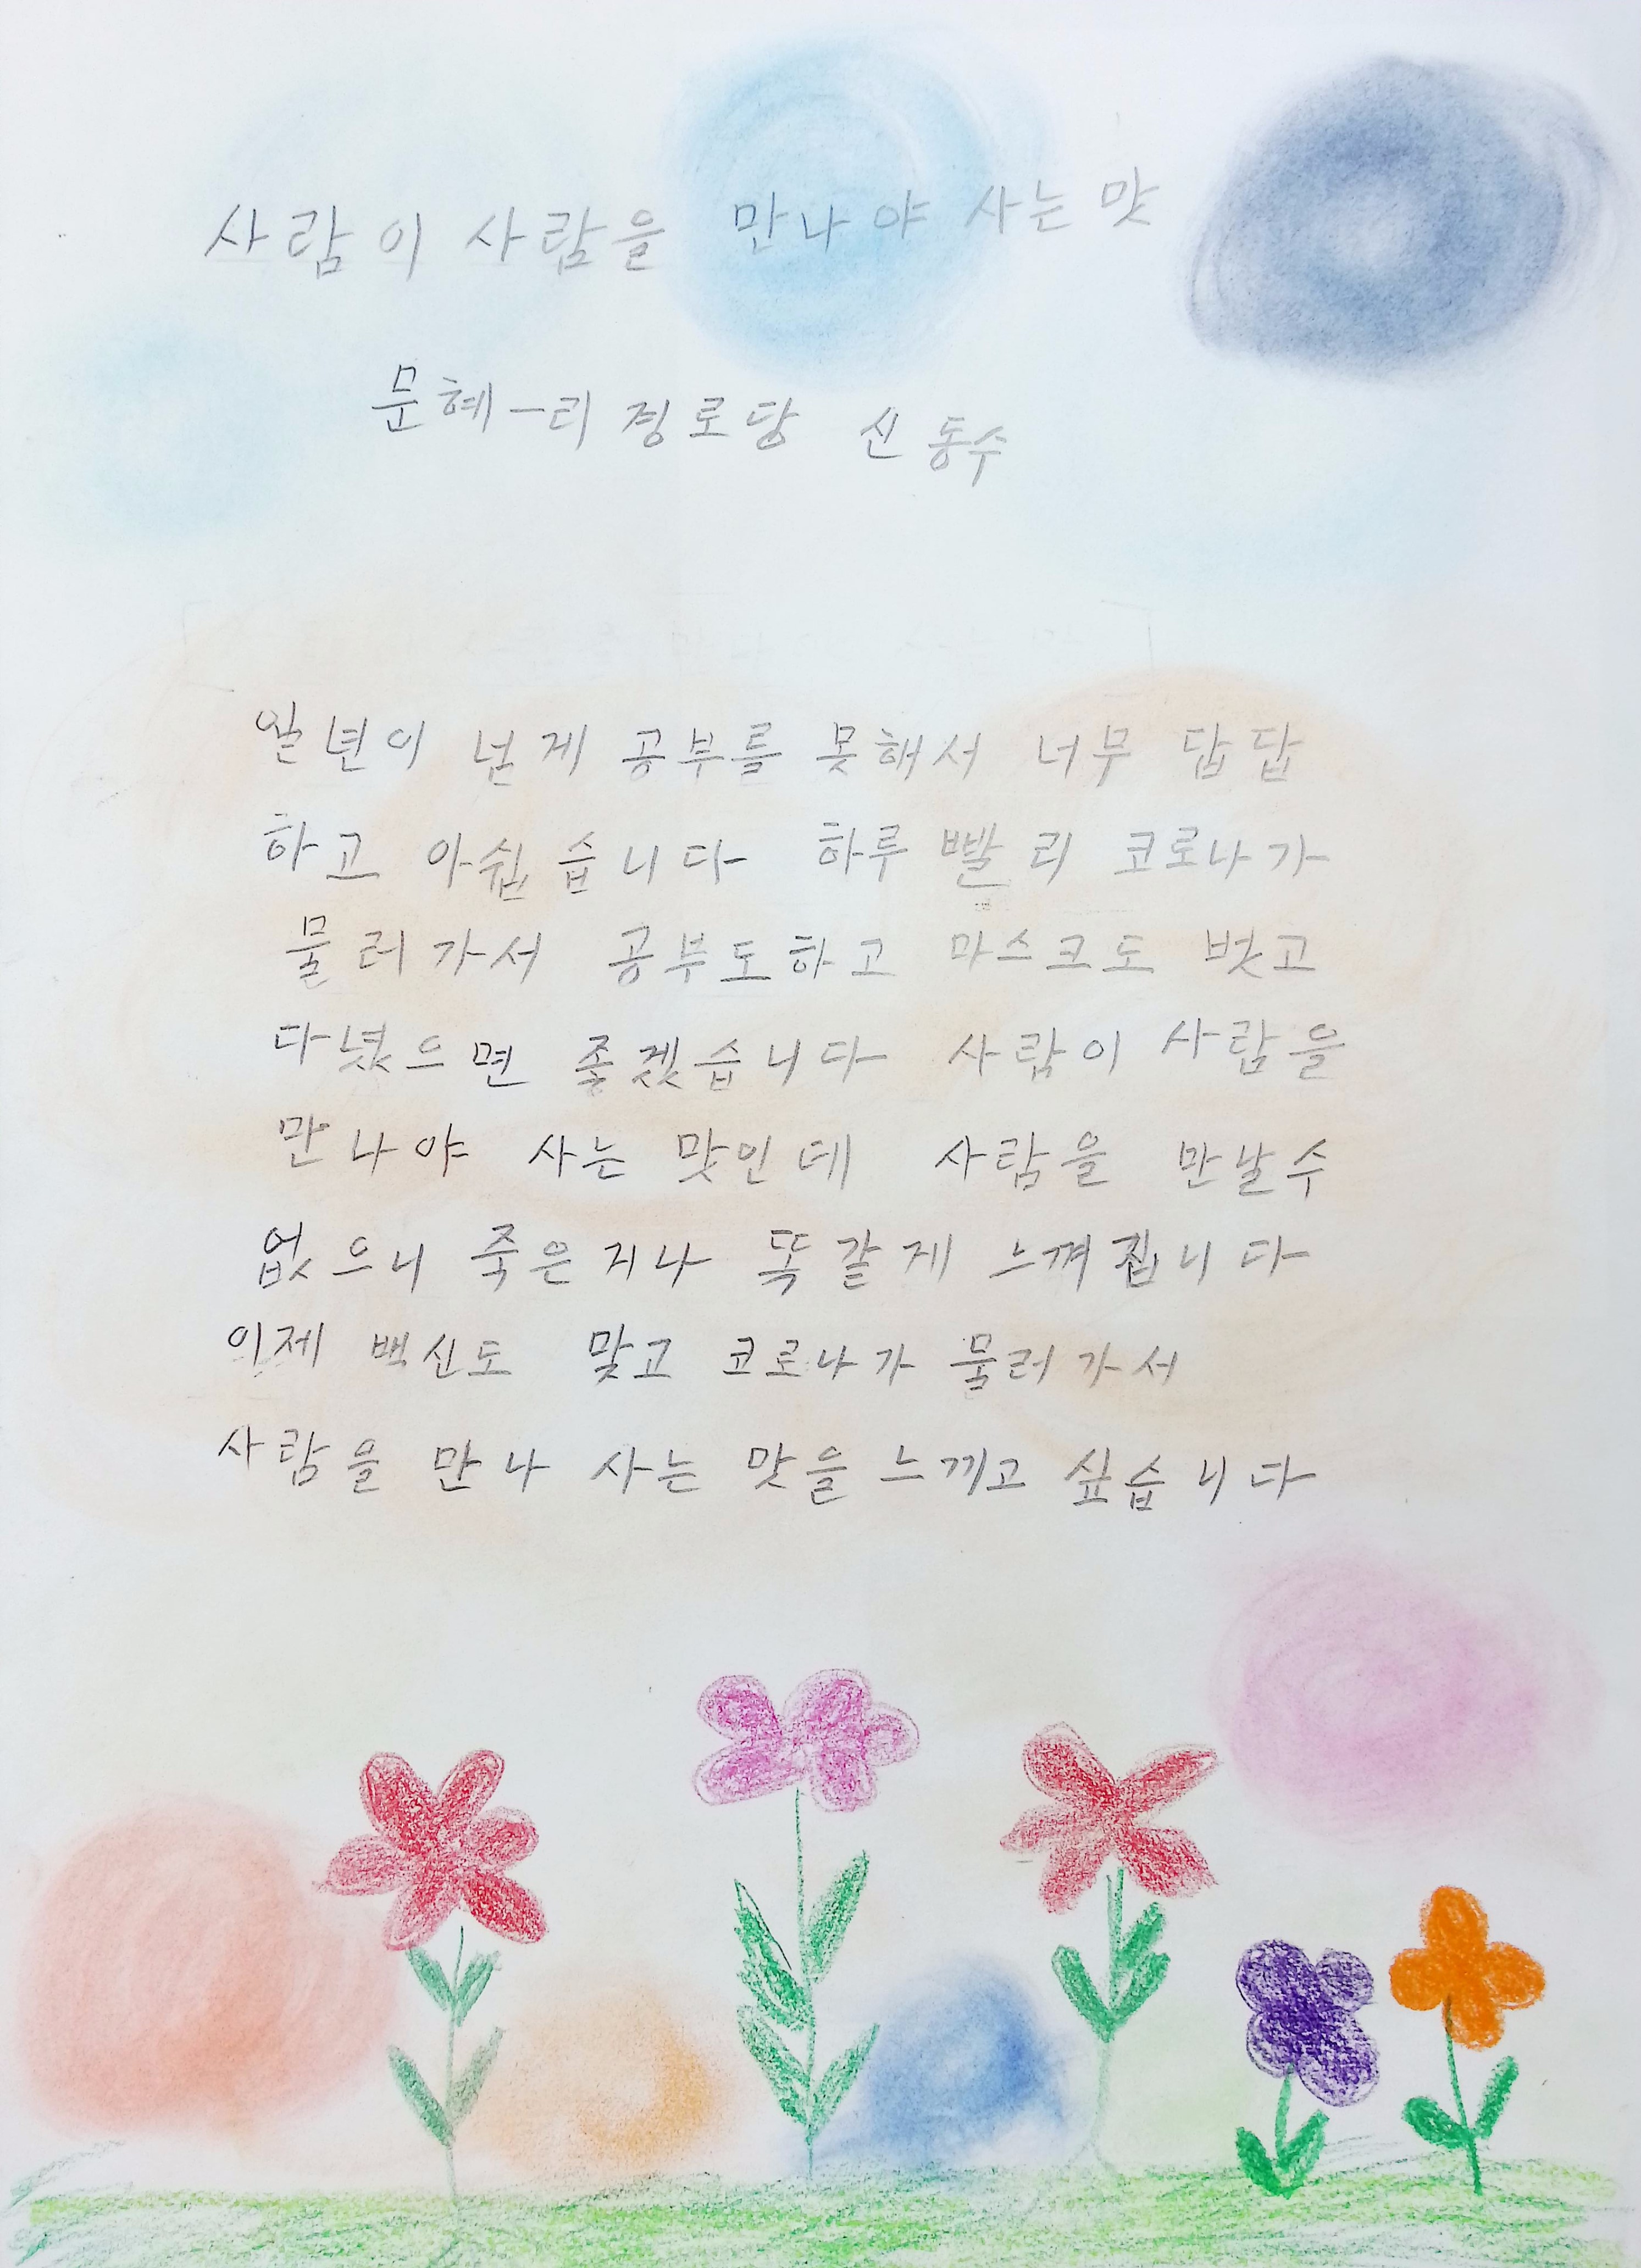 사람이 사람을 만나야 사는 맛
문혜一리 경로당 신동수
일년이 넘게 공부를 못해서 너무 답답
하고 아쉽습니다 하루 빨리 코로나가
물러가서 공부도하고 마스크도 벗고
다녔으면 좋겠습니다 사람이 사람을
만나야 사는 맛인데 사람을 만날수
없으니 죽은지나 똑같게 느껴집니다
이제 백신도 맞고 코로나가 물러가서
사람을 만나 사는 맛을 느끼고 싶습니다